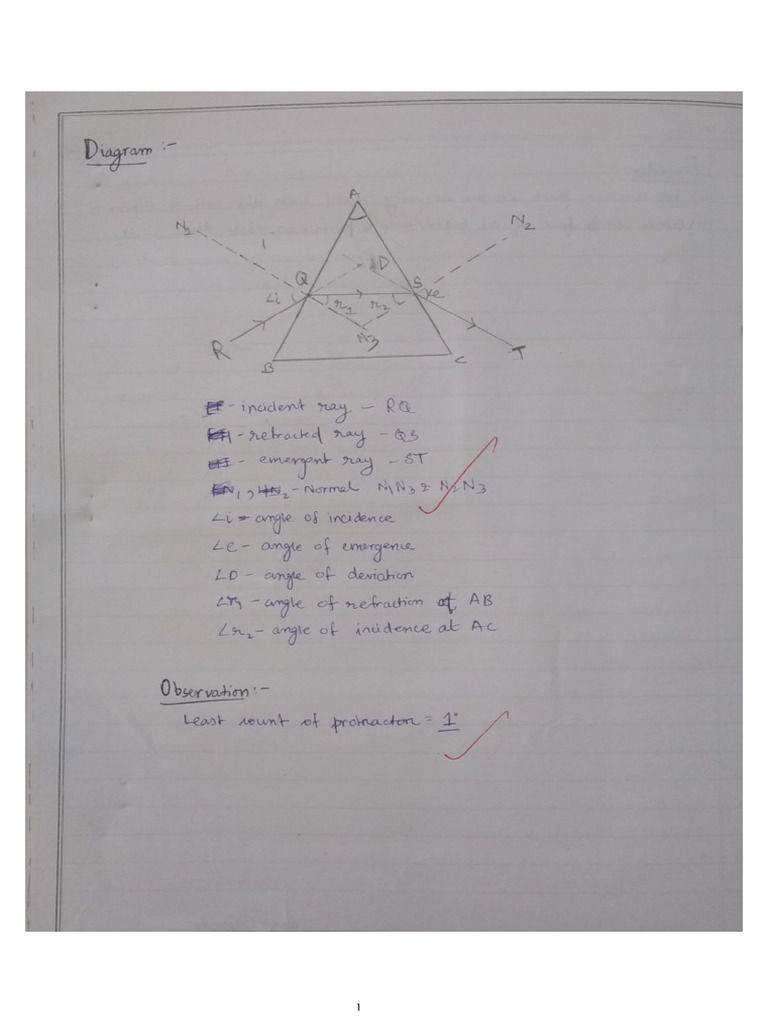 Diagram :-
A
N1
N2
Q
D
S
∠i
r1
r2
∠e
N3
R
T
B
C
- incident ray - RQ
- refracted ray - QS
- emergent ray - ST
N1, N2 - Normal N1N3 & N2N3
∠i - angle of incidence
∠e - angle of emergence
∠D - angle of deviation
∠r1 - angle of refraction at AB
∠r2 - angle of incidence at AC
Observation :-
Least count of protractor = 1°
1